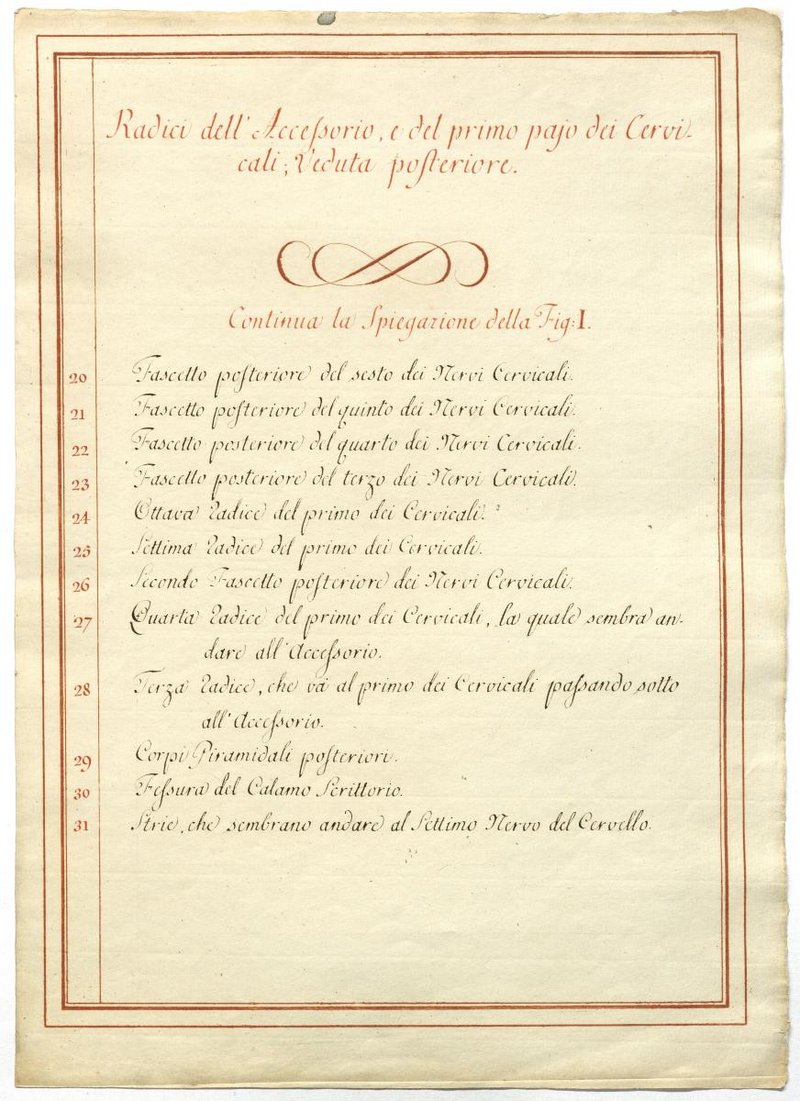 Radici dell' Acceſsorio, e del primo pajo dei Cervi-
cali; Veduta poſteriore.
Continua la Spiegazione della Fig: I.
20 Fascetto poſteriore del sesto dei Nervi Cervicali.
21 Fascetto poſteriore del quinto dei Nervi Cervicali.
22 Fascetto posteriore del quarto dei Nervi Cervicali.
23 Fascetto posteriore del terzo dei Nervi Cervicali.
24 Ottava Radice del primo dei Cervicali.
25 Settima Radice del primo dei Cervicali.
26 Secondo Fascetto poſteriore dei Nervi Cervicali.
27 Quarta Radice del primo dei Cervicali, la quale sembra an-
dare all' Acceſsorio.
28 Terza Radice, che vá al primo dei Cervicali paſsando sotto
all' Acceſsorio.
29 Corpi Piramidali poſteriori.
30 Feſsura del Calamo Scrittorio.
31 Strie, che sembrano andare al Settimo Nervo del Cervello.